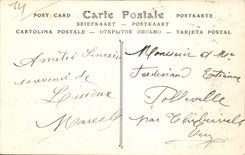 POST CARD Carte Postale POSTKARTE
BRIEFKAART - POSTKAART
CARTOLINA POSTALE - ОТКРЫТОЕ ПИСЬМО - TARJETA POSTAL
Amitié Sincère
souvenir de
Lisieux
Marcel
Monsieur et Mme
Ferdinand
Tolleville
par